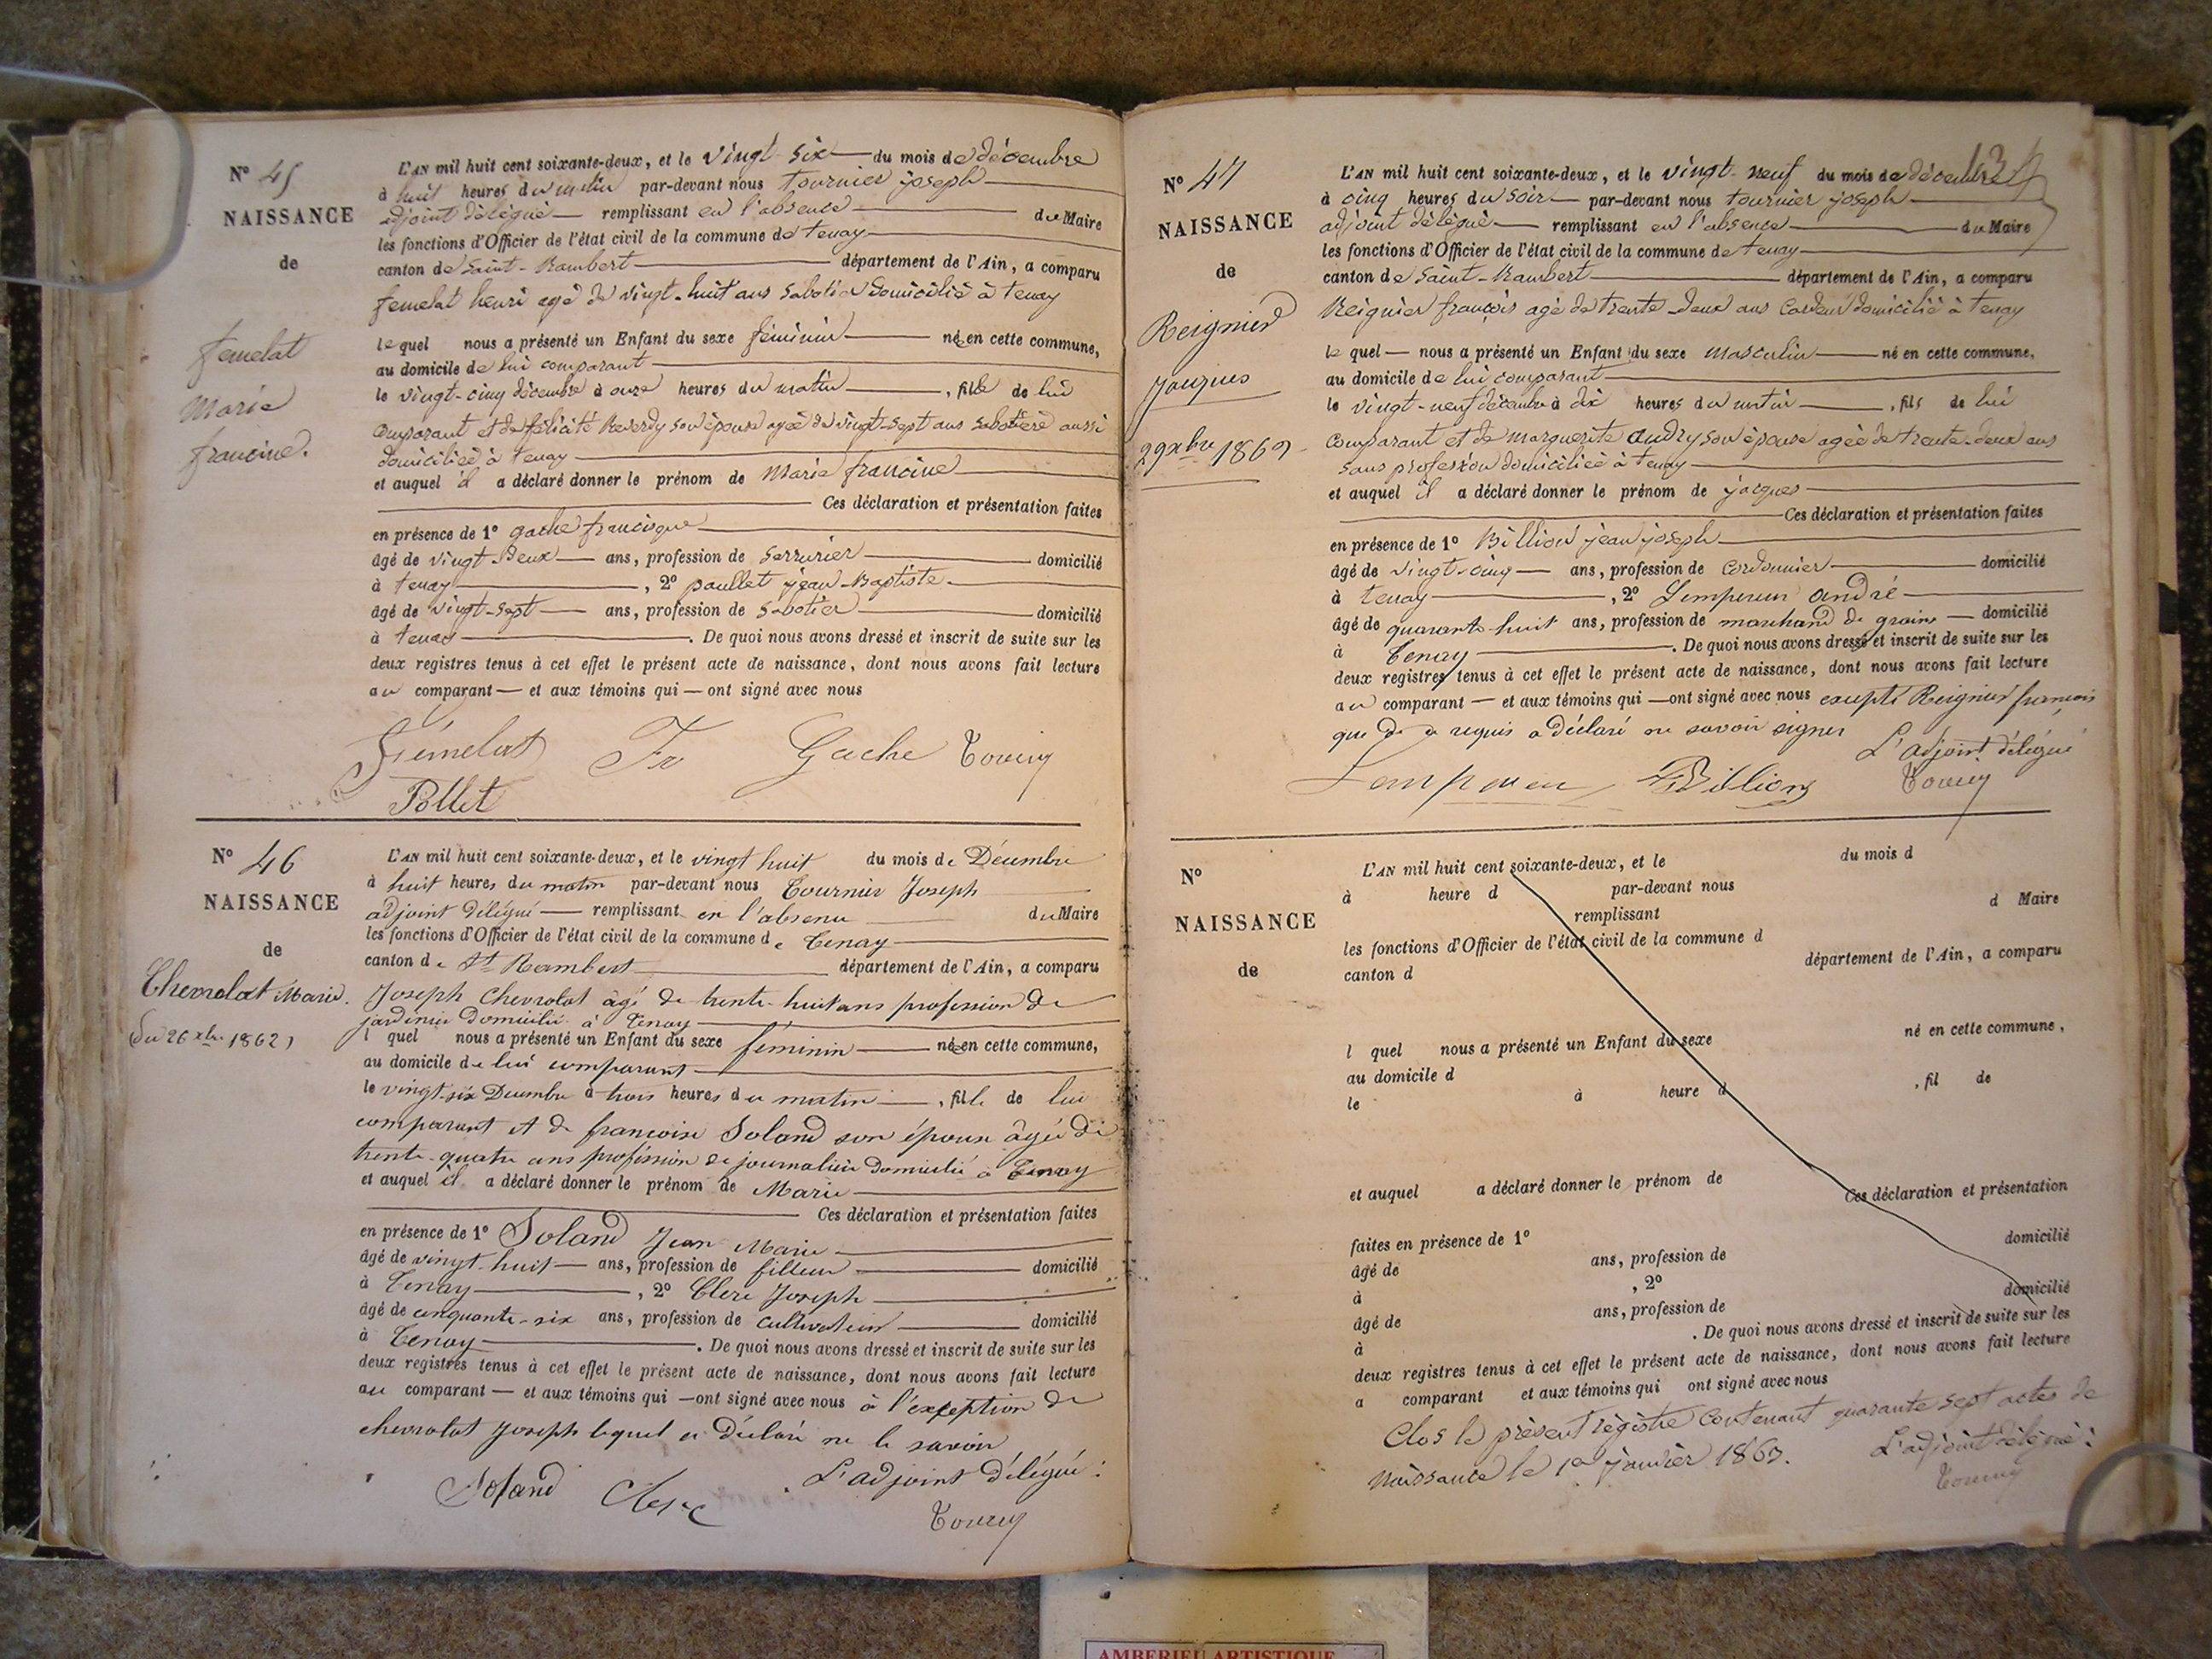 N° 45
NAISSANCE
de
femelat
Marie
francine.
L'AN mil huit cent soixante-deux, et le vingt-six du mois de décembre
à huit heures du matin par-devant nous tournier joseph
adjoint délégué remplissant en l'absence du Maire
les fonctions d'Officier de l'état civil de la commune de tenay
canton de Saint-Rambert département de l'Ain, a comparu
femelat henri agé de vingt-huit ans Sabotier domicilié à tenay
le quel nous a présenté un Enfant du sexe féminin née en cette commune,
au domicile de lui comparant
le vingt-cinq décembre à onze heures du matin, fille de lui
comparant et de félicité Reverdy son épouse agée de vingt-sept ans sabotière aussi
domiciliée à tenay
et auquel il a déclaré donner le prénom de Marie francine
Ces déclaration et présentation faites
en présence de 1° gache francisque
âgé de vingt-deux ans, profession de serrurier domicilié
à tenay, 2° paullet jean-Baptiste
âgé de vingt-sept ans, profession de sabotier domicilié
à tenay. De quoi nous avons dressé et inscrit de suite sur les
deux registres tenus à cet effet le présent acte de naissance, dont nous avons fait lecture
au comparant — et aux témoins qui — ont signé avec nous
Fémelat Fr Gache
Pollet
N° 46
NAISSANCE
de
Chevrolat Marie.
(du 26 xbre 1862)
L'AN mil huit cent soixante-deux, et le vingt huit du mois de Décembre
à huit heures du matin par-devant nous Tournier Joseph
adjoint délégué — remplissant en l'absence du Maire
les fonctions d'Officier de l'état civil de la commune de Tenay
canton de St Rambert département de l'Ain, a comparu
Joseph Chevrolat âgé de trente-huit ans profession de
jardinier domicilié à Tenay
l quel nous a présenté un Enfant du sexe féminin née en cette commune,
au domicile de lui comparant
le vingt-six Décembre à trois heures du matin, fille de lui
comparant et de françoise Soland son épouse âgée de
trente-quatre ans profession de journalière domicilié à Tenay
et auquel il a déclaré donner le prénom de Marie
Ces déclaration et présentation faites
en présence de 1° Soland Jean Marie
âgé de vingt-huit ans, profession de fileur domicilié
à Tenay, 2° Clerc Joseph
âgé de cinquante-six ans, profession de cultivateur domicilié
à Tenay. De quoi nous avons dressé et inscrit de suite sur les
deux registres tenus à cet effet le présent acte de naissance, dont nous avons fait lecture
au comparant — et aux témoins qui — ont signé avec nous à l'exception de
chevrolat Joseph lequel a déclaré ne le savoir
Soland Clerc L'adjoint délégué:
N° 47
NAISSANCE
de
Reignier
Jacques
29 xbre 1862
L'AN mil huit cent soixante-deux, et le vingt-neuf du mois de décembre
à cinq heures du soir par-devant nous tournier joseph
adjoint délégué remplissant en l'absence du Maire
les fonctions d'Officier de l'état civil de la commune de tenay
canton de Saint-Rambert département de l'Ain, a comparu
Reignier françois agé de trente-deux ans cardeur domicilié à tenay
le quel — nous a présenté un Enfant du sexe masculin né en cette commune,
au domicile de lui comparant
le vingt-neuf décembre à dix heures du matin, fils de lui
comparant et de marguerite audry son épouse agée de trente-deux ans
sans profession domiciliée à tenay
et auquel il a déclaré donner le prénom de jacques
Ces déclaration et présentation faites
en présence de 1° Billion jean joseph
âgé de vingt-cinq ans, profession de cordonnier domicilié
à tenay, 2° Lempereur andré
âgé de quarante-huit ans, profession de marchand de grains — domicilié
à Tenay. De quoi nous avons dressé et inscrit de suite sur les
deux registres tenus à cet effet le présent acte de naissance, dont nous avons fait lecture
au comparant — et aux témoins qui — ont signé avec nous excepté Reignier françois
que de ce requis a déclaré ne savoir signer
L'adjoint délégué
Billion
N°
NAISSANCE
de
L'AN mil huit cent soixante-deux, et le du mois d
à heure d par-devant nous
remplissant d Maire
les fonctions d'Officier de l'état civil de la commune d
canton d département de l'Ain, a comparu
l quel nous a présenté un Enfant du sexe né en cette commune,
au domicile d
le à heure d, fil de
et auquel a déclaré donner le prénom de
Ces déclaration et présentation
faites en présence de 1°
âgé de ans, profession de domicilié
à, 2°
âgé de ans, profession de domicilié
à. De quoi nous avons dressé et inscrit de suite sur les
deux registres tenus à cet effet le présent acte de naissance, dont nous avons fait lecture
a comparant et aux témoins qui ont signé avec nous
Clos le présent régistre contenant quarante sept actes de
naissance le 1er janvier 1863. L'adjoint délégué:
AMBERIEU ARTISTIQUE